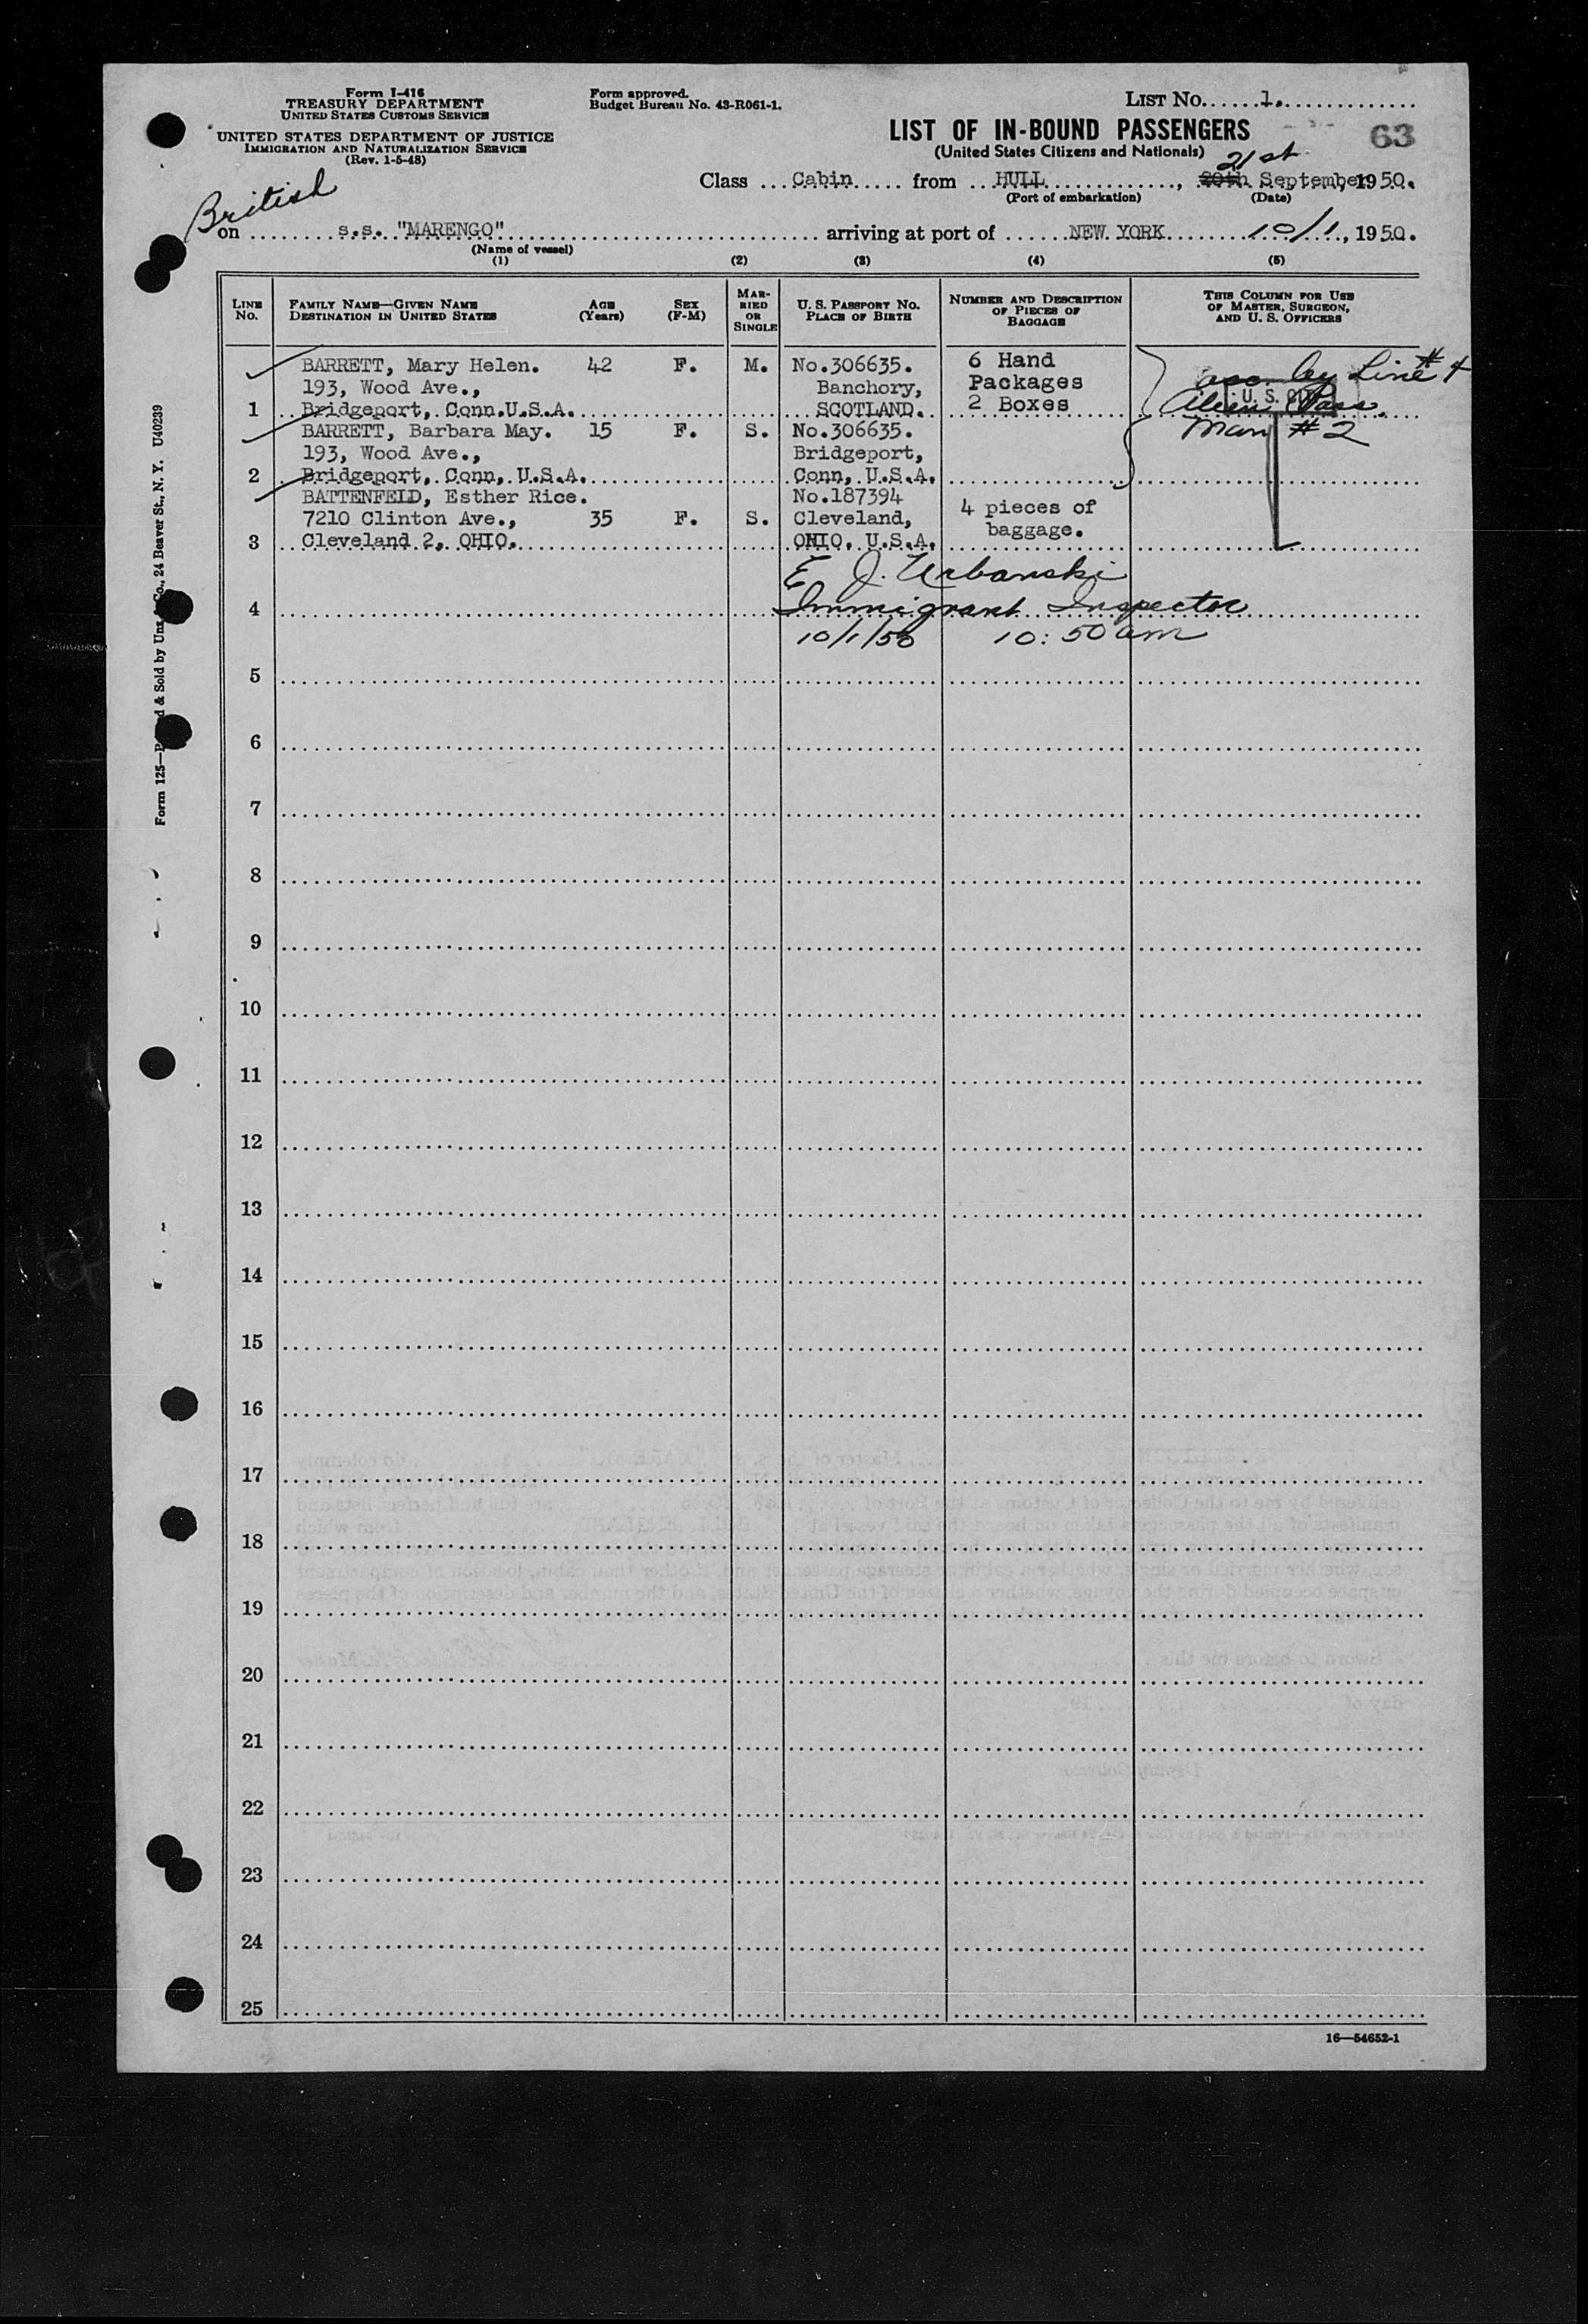 Form I-416
TREASURY DEPARTMENT
UNITED STATES CUSTOMS SERVICE
UNITED STATES DEPARTMENT OF JUSTICE
IMMIGRATION AND NATURALIZATION SERVICE
(Rev. 1-5-48)
Form approved.
Budget Bureau No. 43-R061-1.
LIST No. 1.
LIST OF IN-BOUND PASSENGERS
63
(United States Citizens and Nationals)
21st
Class Cabin from HULL, 20th September, 1950.
(Port of embarkation) (Date)
British
on s.s. "MARENGO" arriving at port of NEW YORK 10/1, 1950.
(Name of vessel)
(1) (2) (3) (4) (5)
LINE No. FAMILY NAME—GIVEN NAME DESTINATION IN UNITED STATES AGE (Years) SEX (F-M) MARRIED OR SINGLE U. S. PASSPORT NO. PLACE OF BIRTH NUMBER AND DESCRIPTION OF PIECES OF BAGGAGE THIS COLUMN FOR USE OF MASTER, SURGEON, AND U. S. OFFICERS
BARRETT, Mary Helen. 42 F. M. No.306635. 6 Hand acc. by Line #4
193, Wood Ave., Banchory, Packages
1 Bridgeport, Conn.U.S.A. SCOTLAND. 2 Boxes Alien Pass.
U. S. CIT
BARRETT, Barbara May. 15 F. S. No.306635. Man #2
193, Wood Ave., Bridgeport,
2 Bridgeport, Conn, U.S.A. Conn, U.S.A.
BATTENFELD, Esther Rice. No.187394
7210 Clinton Ave., 35 F. S. Cleveland, 4 pieces of
3 Cleveland 2, OHIO. OHIO, U.S.A. baggage.
E J. Urbanski
4 Immigrant Inspector
10/1/50 10:50 am
5
6
7
8
9
10
11
12
13
14
15
16
17
18
19
20
21
22
23
24
25
16—54652-1